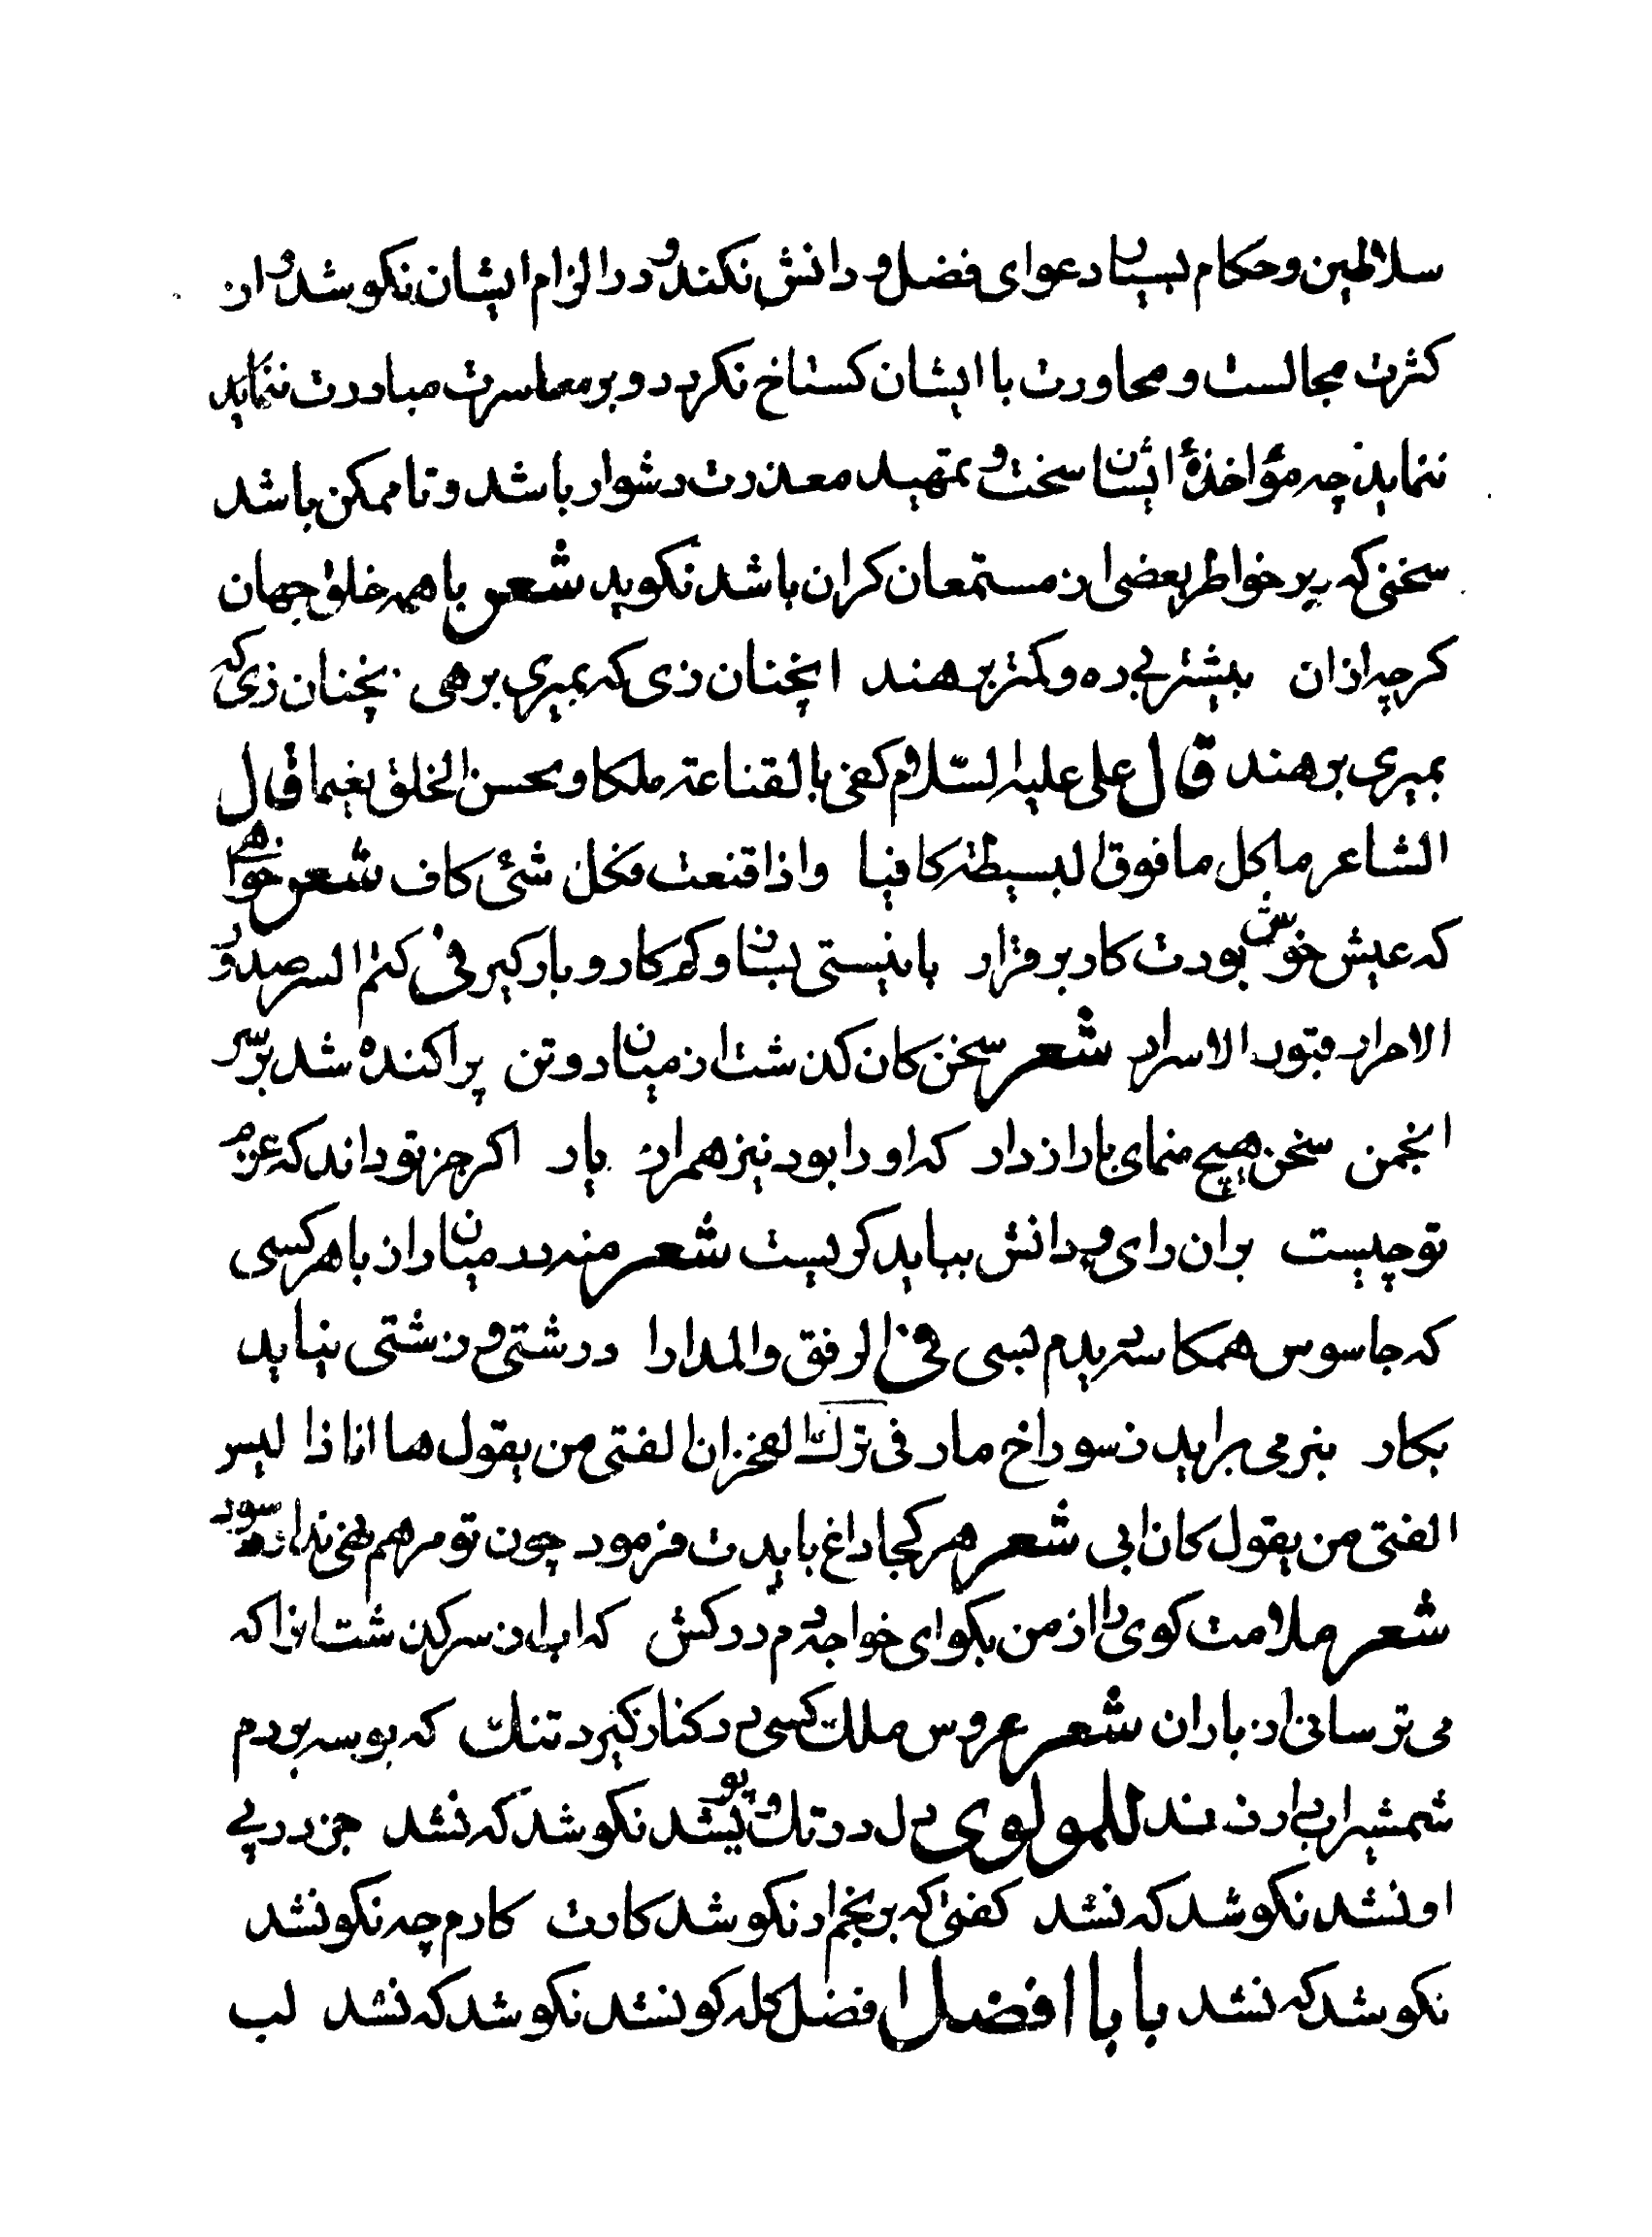 سلاطین و حکام بسیار دعوای فضل و دانش نکند و در الزام ایشان نکوشد و از
کثرت مجالست و محاورت با ایشان کستاخ نکردد و بر معاسرت مبادرت ننماید
ننماید چه مؤاخذهٔ ایشان سخت و تمهید معذرت دشوار باشد و تا ممکن باشد
سخنی که بر خواطر بعضی از مستمعان کران باشد نکوید شعر با همه خلق جهان
کرچه ازان بیشتر بی ره و کمتر برهند انچنان زی که بمیری برهی نچنان زی که
بمیری برهند قال علی علیه السلام کفی بالقناعة ملکا و بحسن الخلق نعیما قال
الشاعر ما کل ما فوق البسیطة کافیا و اذا قنعت فکل شئ کاف شعر خواهی
که عیش خوش بودت کار بر قرار با نیستی بسان و کم کار و بار کیر فی کتم السر صدور
الاحرار قبور الاسرار شعر سخن کان کذشت از میان دو تن پراکنده شد بر سر
انجمن سخن هیچ منمای با رازدار که او را بود نیز همراز یار اکر جز تو داند که عزم
تو چیست بران رای و دانش بباید کریست شعر منه در میان راز با هر کسی
که جاسوس همکاسه دیدم بسی فی الرفق والمدارا درشتی و زشتی نیاید
بکار بنرمی براید ز سوراخ مار فی ترک الفخر ان الفتی من یقول ها انا ذا لیس
الفتی من یقول کان ابی شعر هر کجا داغ بایدت فرمود چون تو مرهم نهی ندارد سود
شعر ملامت کوی را از من بکو ای خواجه دم درکش که اب از سر کذشت انرا که
می ترسانی از باران شعر عروس ملک کسی در کنار کیرد تنک که بوسه بر دم
شمشیر ابدار زند للمولوی دل در تک و پو نشد نکو شد که نشد جز در پی
او نشد نکو شد که نشد کفتی که برنجم ار نکو شد کارت کارم چه نکو نشد
نکو شد که نشد بابا افضل افضل کله کو نشد نکو شد که نشد لب